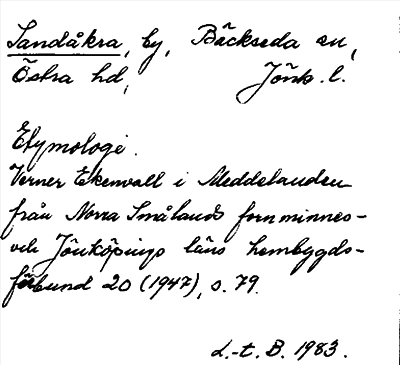 Sandåkra, by, Bäckseda sn,
Östra hd, Jönk. l.
Etymologi.
Verner Ekenvall i Meddelanden
från Norra Smålands fornminnes-
och Jönköpings läns hembygds-
förbund 20 (1947), s. 79.
L.-t. B. 1983.